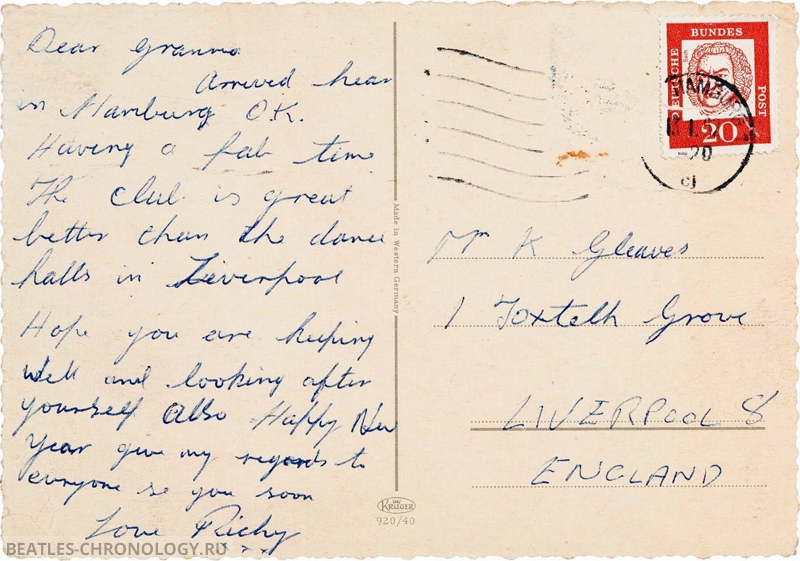 Dear Granma
Arrived hear
in Hamburg O.K.
Having a fab time
The club is great
better than the dance
halls in Liverpool
Hope you are keeping
well and looking after
yourself Also Happy New
Year give my regards to
everyone se you soon
Love Richy
BEATLES-CHRONOLOGY.RU
Made in Western Germany
KRÜGER
920/40
DEUTSCHE BUNDES POST
20
HAMBURG
-20
cj
Mr K Gleaves
1 Toxteth Grove
LIVERPOOL 8
ENGLAND